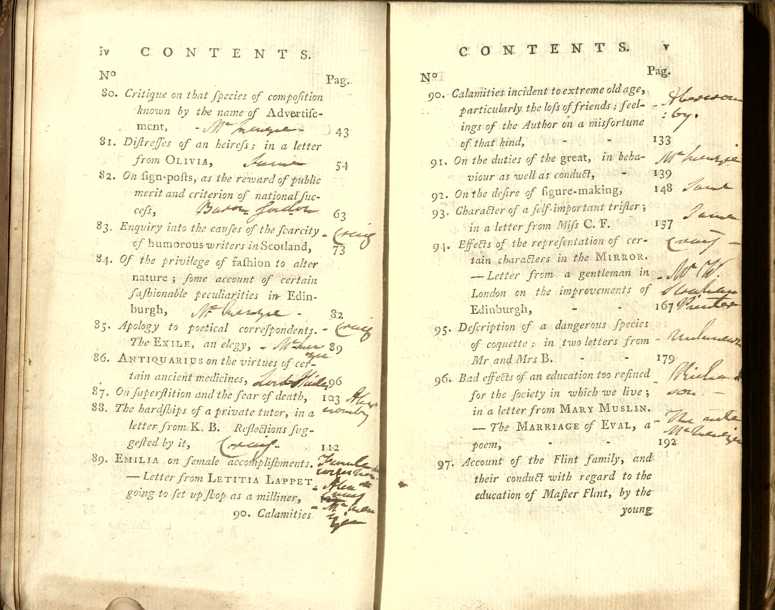 iv CONTENTS.
Nº Pag.
80. Critique on that species of composition
known by the name of Advertise-
ment, - Mr Mckenzie - 43
81. Distresses of an heiress: in a letter
from OLIVIA, Same 54
82. On sign-posts, as the reward of public
merit and criterion of national suc-
cess, Baron Gordon 63
83. Enquiry into the causes of the scarcity - Craig
of humorous writers in Scotland, 73
84. Of the privilege of fashion to alter
nature; some account of certain
fashionable peculiarities in Edin-
burgh, 82
85. Apology to poetical correspondents. - Craig
The EXILE, an elegy, - 89
86. ANTIQUARIUS on the virtues of cer-
tain ancient medicines, Lord Hailes 96
87. On superstition and the fear of death, 103
88. The hardships of a private tutor, in a
letter from K. B. Reflections sug-
gested by it, Craig - 112
89. EMILIA on female accomplishments.
—Letter from LETITIA LAPPET
going to set up shop as a milliner,
90. Calamities
CONTENTS. v
Nº Pag.
90. Calamities incident to extreme old age,
particularly the loss of friends; feel- - Abercrom
ings of the Author on a misfortune : by.
of that kind, - - 133
91. On the duties of the great, in beha-
viour as well as conduct, - 139
92. On the desire of figure-making, 148 Same
93. Character of a self-important trifler; Same
in a letter from Miss C. F. 157
94. Effects of the representation of cer- Craig —
tain characters in the MIRROR.
—Letter from a gentleman in - Mr W.
London on the improvements of
Edinburgh, - - 167 Printer
95. Description of a dangerous species
of coquette: in two letters from
Mr and Mrs B. - - 179
96. Bad effects of an education too refined
for the society in which we live; Richard
in a letter from MARY MUSLIN. son —
— The MARRIAGE of EVAL, a
poem, - - 192
97. Account of the Flint family, and
their conduct with regard to the
education of Master Flint, by the
young